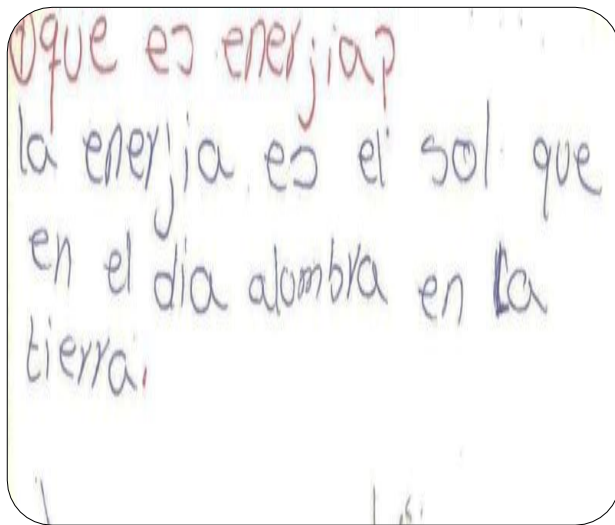 ①que es enerjia?
la enerjia es el sol que
en el dia alombra en la
tierra.